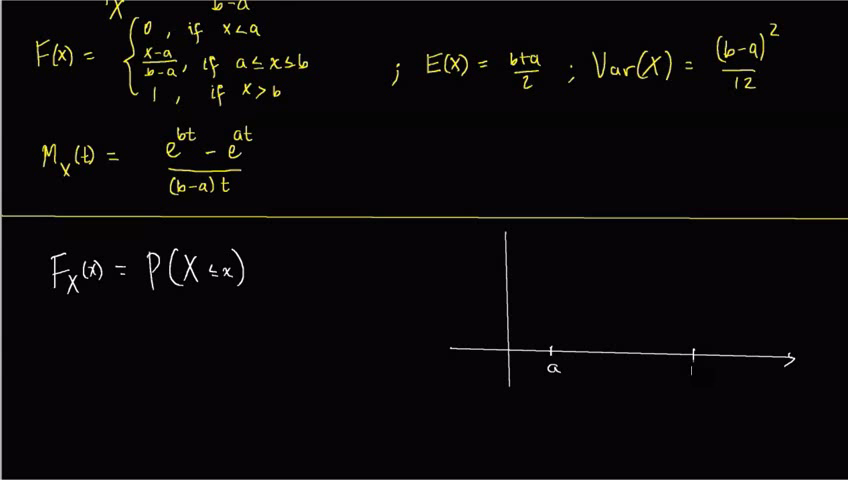 X b-a
F(x) = { 0, if x<a
x-a/b-a, if a≤x≤b
1, if x>b
; E(X) = b+a/2 ; Var(X) = (b-a)²/12
M_X(t) = e^bt - e^at/(b-a)t
F_X(x) = P(X≤x)
a